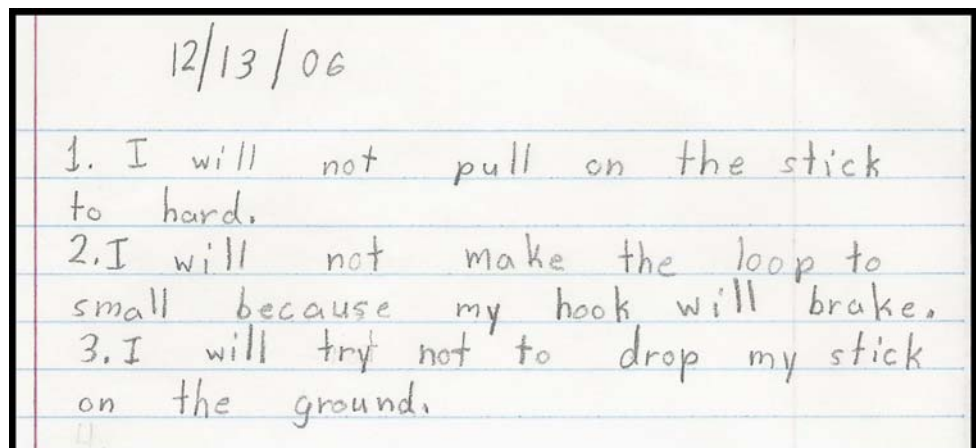 12/13/06
1. I will not pull on the stick
to hard.
2. I will not make the loop to
small because my hook will brake.
3. I will try not to drop my stick
on the ground.